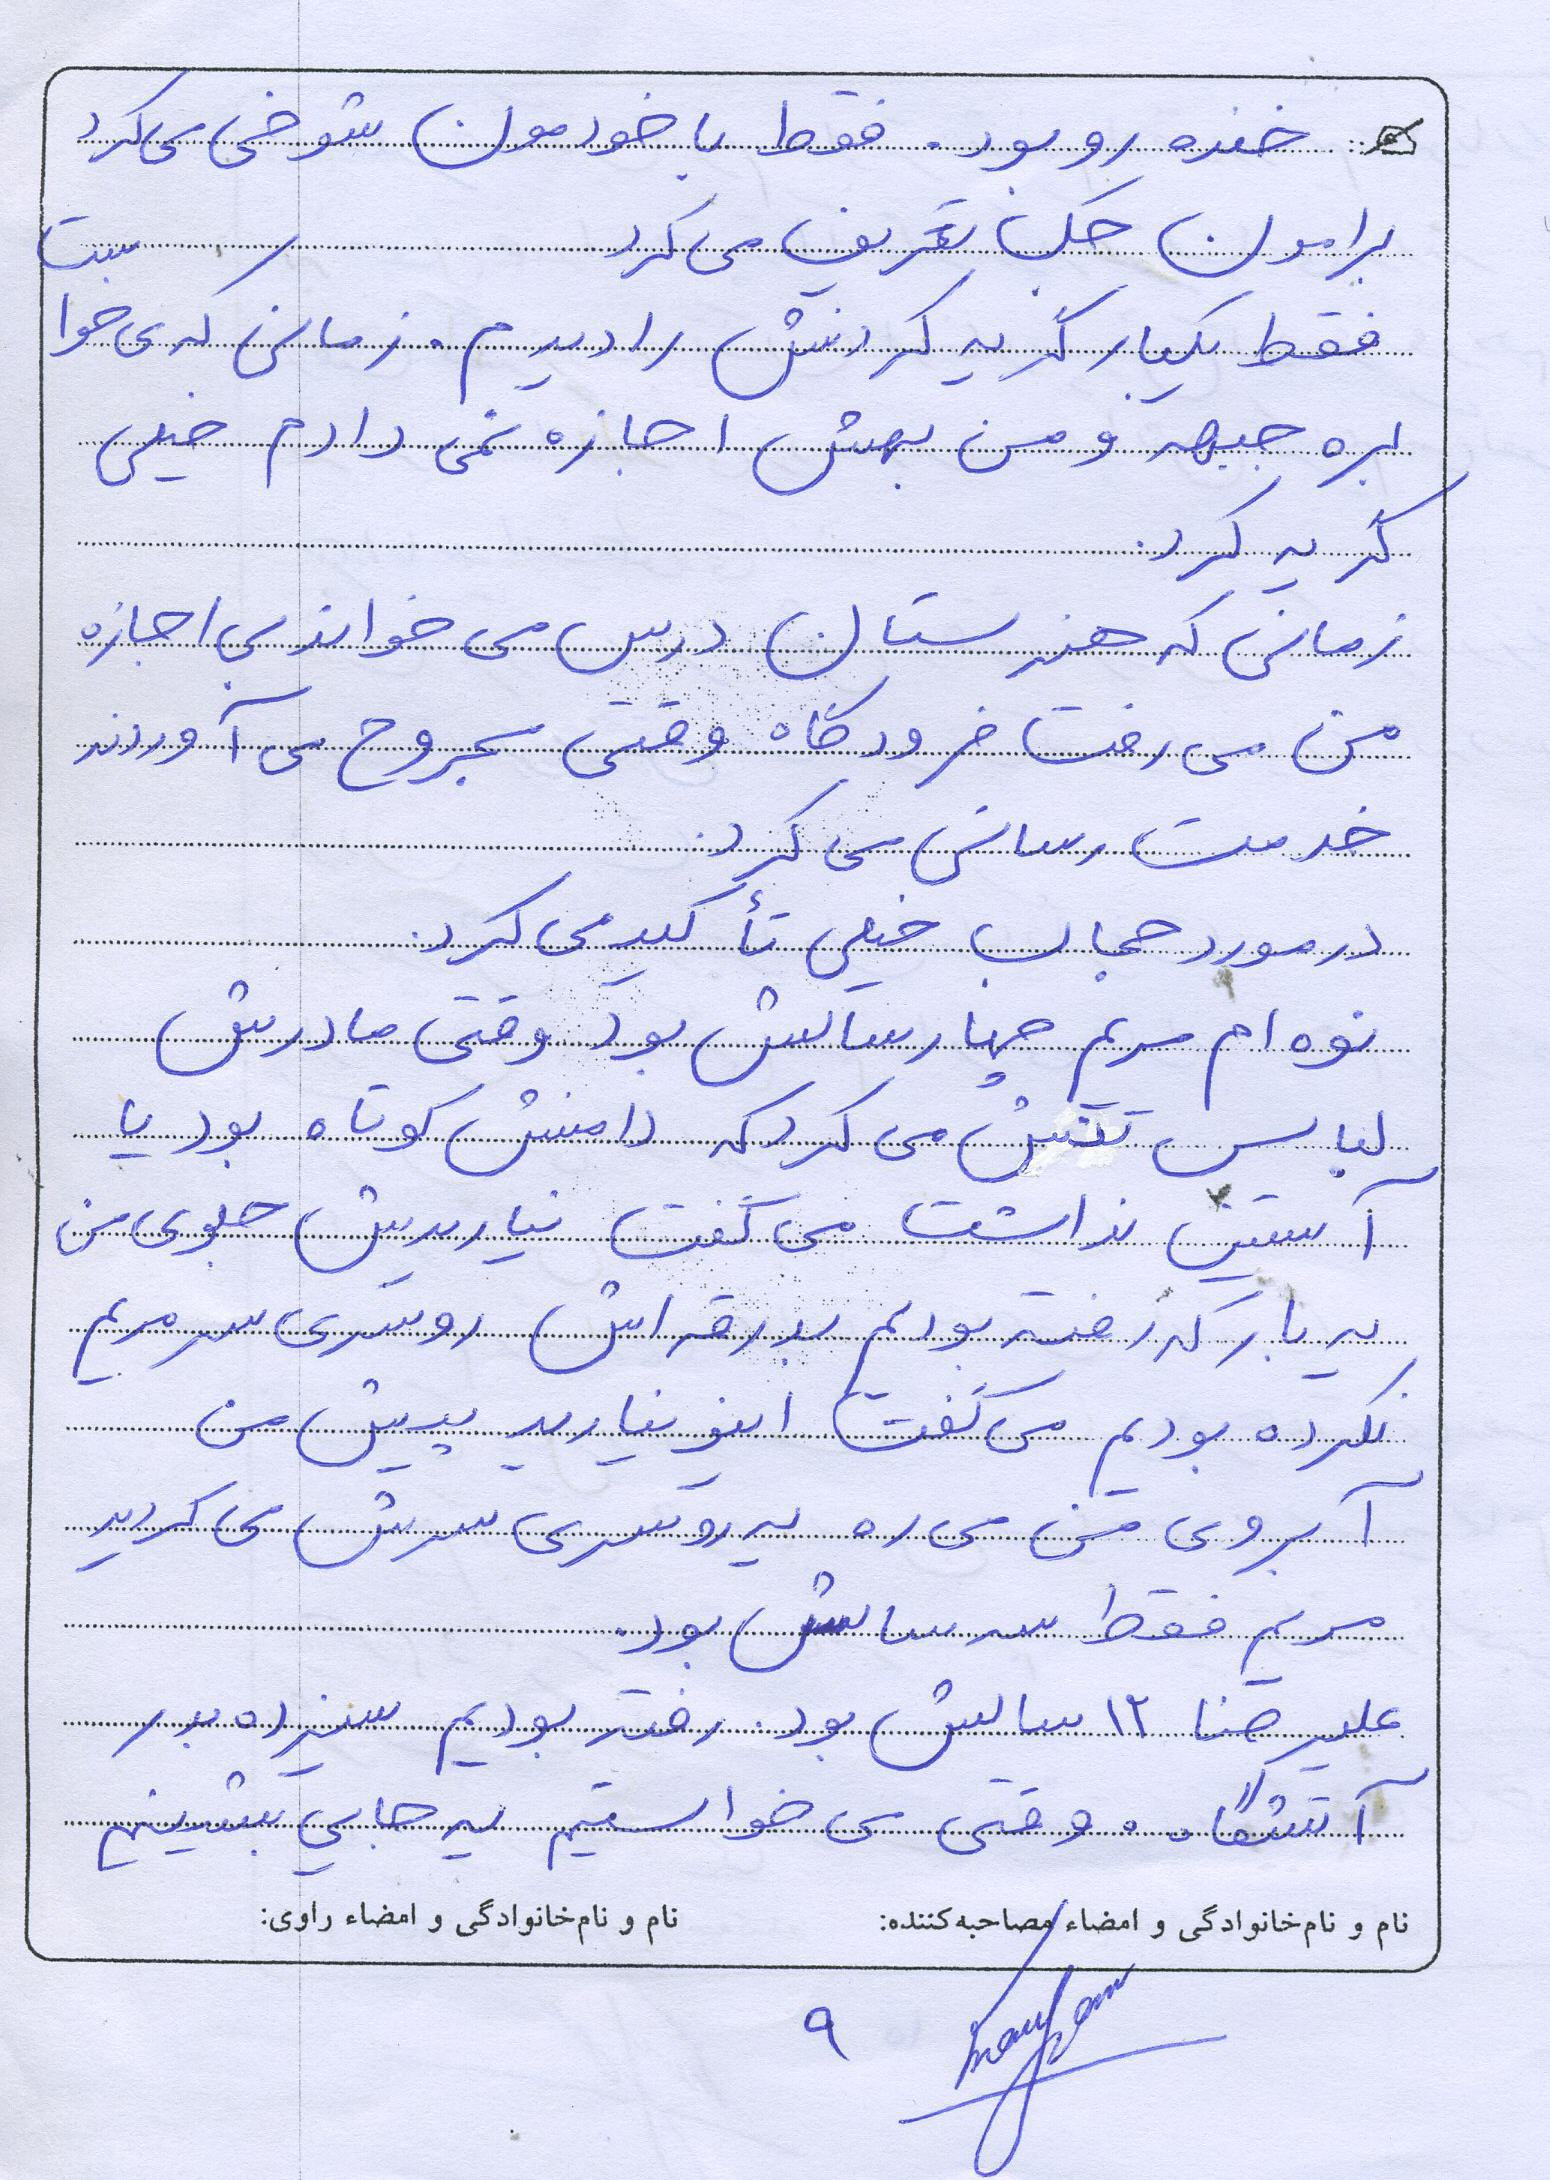 خنده رو بود. فقط با خودمون شوخی می‌کرد
برامون جک تعریف می‌کرد
فقط یکبار گریه کردنش را دیدم. زمانی که می‌خواست
بره جبهه و من بهش اجازه نمی دادم خیلی
گریه کرد.
زمانی که هنرستان درس می خواند بی اجازه
من می رفت فرودگاه وقتی مجروح می آوردند
خدمت رسانی می کرد.
در مورد حجاب خیلی تأکید می کرد.
نوه ام مریم چهارسالش بود وقتی مادرش
لباس تنش می کرد که دامنش کوتاه بود یا
آستین نداشت می گفت نیاریدش جلوی من
یه بار که رفته بودیم بدرقه اش روسری سر مریم
نکرده بودیم می گفت اینو نیارید پیش من
آبروی من می ره یه روسری سرش می کردید
مریم فقط سه سالش بود.
علیرضا ۱۲ سالش بود. رفته بودیم سیزده بدر
آتشگاه. وقتی می خواستیم یه جایی بشینیم
نام و نام‌خانوادگی و امضاء مصاحبه‌کننده: نام و نام‌خانوادگی و امضاء راوی:
۹